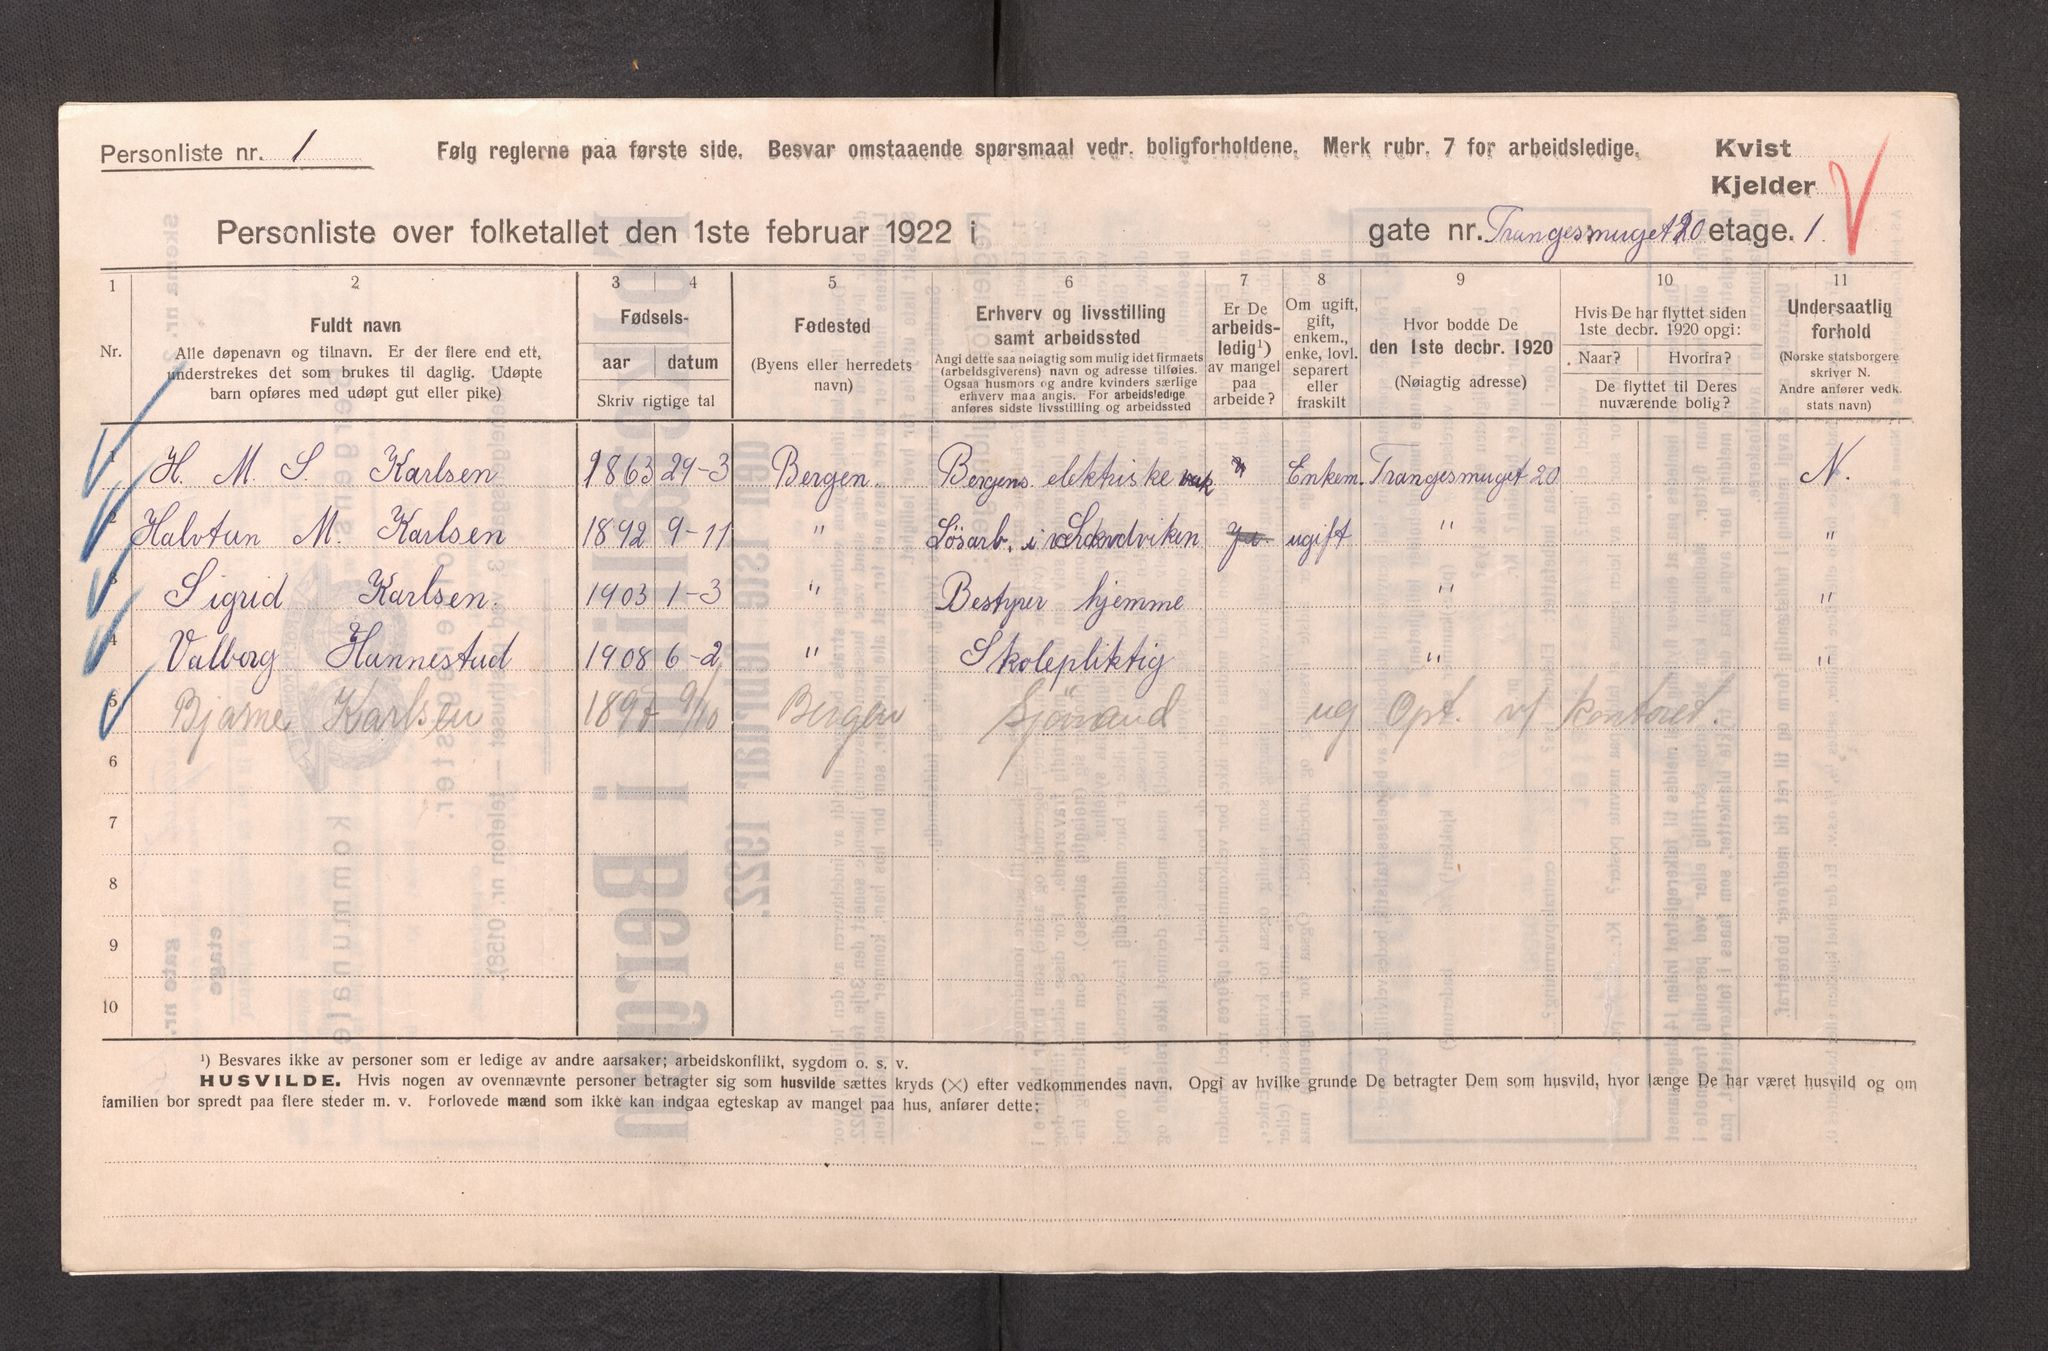 Personliste nr. 1
Følg reglerne paa første side. Besvar omstaaende spørsmaal vedr. boligforholdene. Merk rubr. 7 for arbeidsledige.
Kvist
Kjelder
Personliste over folketallet den 1ste februar 1922 i gate nr. Trangesmuget 20 etage. 1.
1 2 3 4 5 6 7 8 9 10 11
Nr.
Fuldt navn
Alle døpenavn og tilnavn. Er der flere end ett,
understrekes det som brukes til daglig. Udøpte
barn opføres med udøpt gut eller pike)
Fødsels-
aar datum
Skriv rigtige tal
Fødested
(Byens eller herredets
navn)
Erhverv og livsstilling
samt arbeidssted
Angi dette saa nøiagtig som mulig idet firmaets
(arbeidsgiverens) navn og adresse tilføies.
Ogsaa husmors og andre kvinders særlige
erhverv maa angis. For arbeidsledige
anføres sidste livsstilling og arbeidssted
Er De
arbeids-
ledig¹)
av mangel
paa
arbeide?
Om ugift,
gift,
enkem.,
enke, lovl.
separert
eller
fraskilt
Hvor bodde De
den 1ste decbr. 1920
(Nøiagtig adresse)
Hvis De har flyttet siden
1ste decbr. 1920 opgi:
Naar? Hvorfra?
De flyttet til Deres
nuværende bolig?
Undersaatlig
forhold
(Norske statsborgere
skriver N.
Andre anfører vedk.
stats navn)
1 H. M. S. Karlsen 1863 29-3 Bergen. Bergens elektriske verk Enkem. Trangesmuget 20 N.
2 Halvtun M. Karlsen 1892 9-11 " Løsarb. i Sandviken Ja ugift " "
3 Sigrid Karlsen. 1903 1-3 " Bestyrer hjemme " "
4 Valborg Hannestad 1908 6-2 " Skolepliktig " "
5 Bjarne Karlsen 1897 9/10 Bergen Sjømand ug Opt. v/ kontoret.
6
7
8
9
10
¹) Besvares ikke av personer som er ledige av andre aarsaker; arbeidskonflikt, sygdom o. s. v.
HUSVILDE. Hvis nogen av ovennævnte personer betragter sig som husvilde sættes kryds (×) efter vedkommendes navn. Opgi av hvilke grunde De betragter Dem som husvild, hvor længe De har været husvild og om
familien bor spredt paa flere steder m. v. Forlovede mænd som ikke kan indgaa egteskap av mangel paa hus, anfører dette: